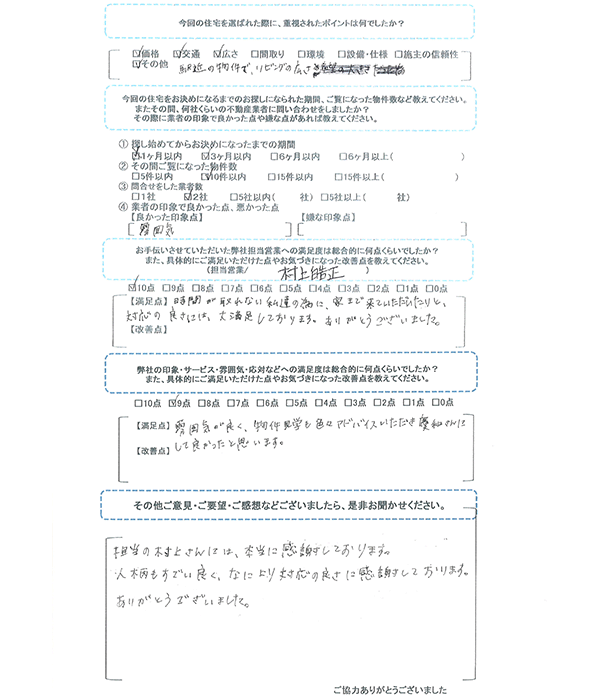 今回の住宅を選ばれた際に、重視されたポイントは何でしたか？
☑価格 ☑交通 ☑広さ □間取り □環境 □設備・仕様 □施主の信頼性
☑その他 駅近の物件で、リビングの広さ
今回の住宅をお決めになるまでのお探しになられた期間、ご覧になった物件数など教えてください。
またその間、何社くらいの不動産業者に問い合わせをしましたか？
その際に業者の印象で良かった点や嫌な点があれば教えてください。
① 探し始めてからお決めになったまでの期間
☑1ヶ月以内 ☑3ヶ月以内 □6ヶ月以内 □6ヶ月以上( )
② その間ご覧になった物件数
□5件以内 ☑10件以内 □15件以内 □15件以上( )
③ 問合せをした業者数
□1社 ☑2社 □5社以内( 社) □5社以上( 社)
④ 業者の印象で良かった点、悪かった点
【良かった印象点】 【嫌な印象点】
雰囲気
お手伝いさせていただいた弊社担当営業への満足度は総合的に何点くらいでしたか？
また、具体的にご満足いただけた点やお気づきになった改善点を教えてください。
(担当営業/ 村上皓正 )
☑10点 □9点 □8点 □7点 □6点 □5点 □4点 □3点 □2点 □1点 □0点
【満足点】 時間が取れない私達の為に、家まで来ていただいたりと、
対応の良さには、大満足しております。ありがとうございました。
【改善点】
弊社の印象・サービス・雰囲気・応対などへの満足度は総合的に何点くらいでしたか？
また、具体的にご満足いただけた点やお気づきになった改善点を教えてください。
□10点 ☑9点 □8点 □7点 □6点 □5点 □4点 □3点 □2点 □1点 □0点
【満足点】 雰囲気が良く、物件見学も色々アドバイスいただき さんに
【改善点】 して良かったと思います。
その他ご意見・ご要望・ご感想などございましたら、是非お聞かせください。
担当の村上さんには、本当に感謝しております。
人柄もすごい良く、なにより対応の良さに感謝しております。
ありがとうございました。
ご協力ありがとうございました